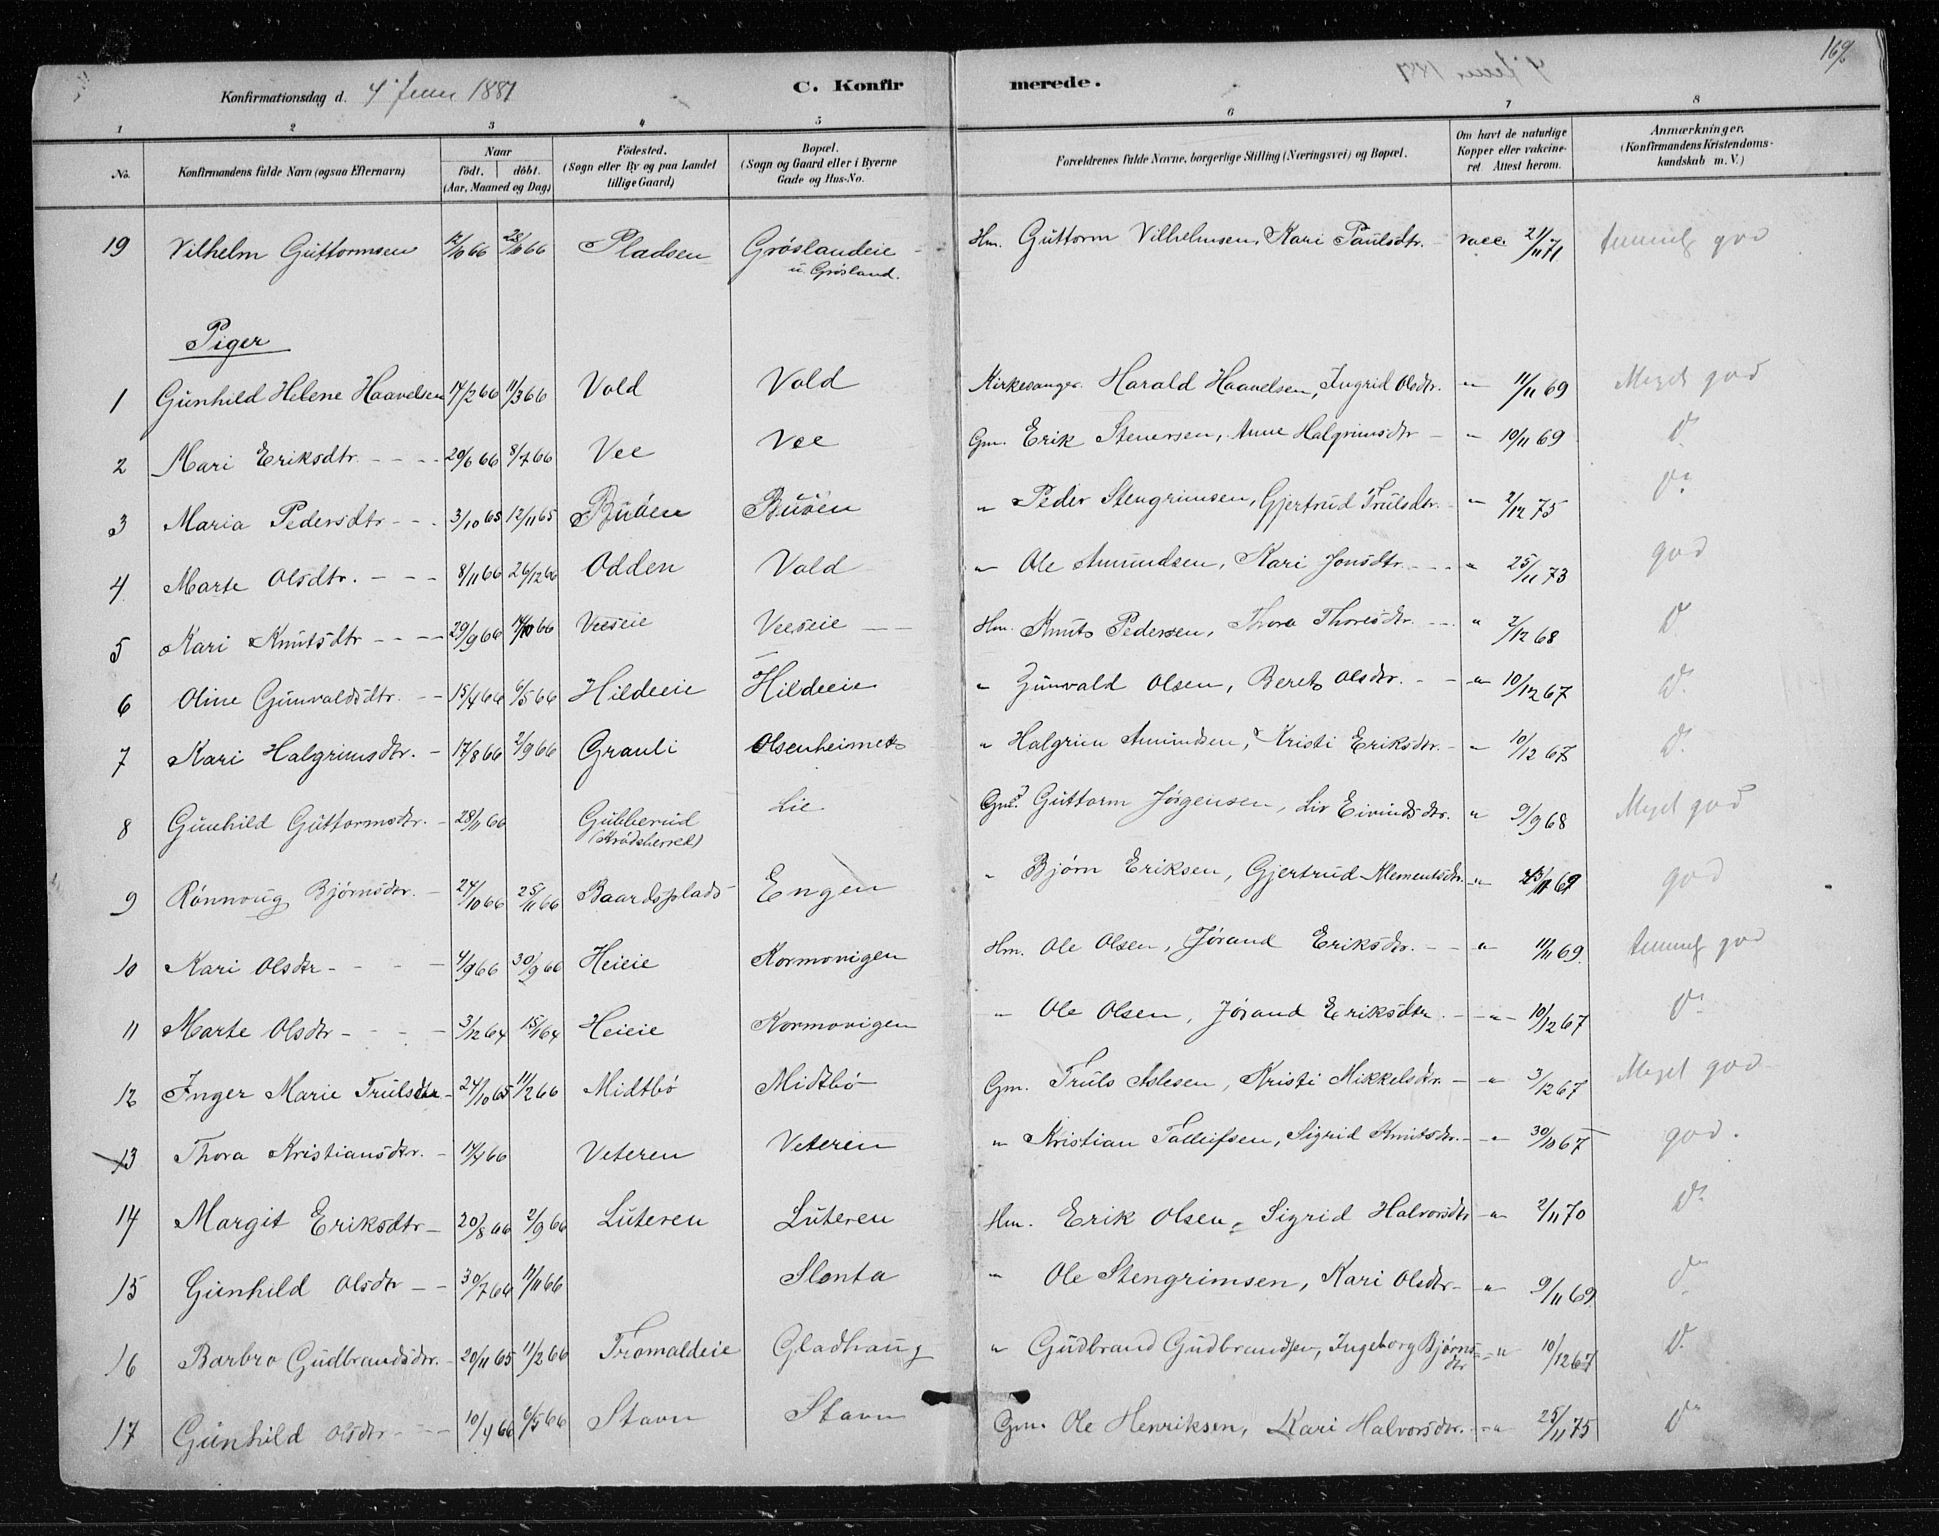 169
Konfirmationsdag d. 4 Juni 1881 C. Konfirmerede.
1 2 3 4 5 6 7 8
No. Konfirmandens fulde Navn (ogsaa Efternavn) Naar født. døbt. (Aar, Maaned og Dag) Fødested. (Sogn eller By og paa Landet tillige Gaard) Bopæl. (Sogn og Gaard eller i Byerne Gade og Hus-No. Forældrenes fulde Navne, borgerlige Stilling (Næringsvei) og Bopæl. Om havt de naturlige Kopper eller vaccineret. Attest herom. Anmærkninger. (Konfirmandens Kristendomskundskab m. V.)
19 Vilhelm Guttormsen 12/10 66 28/10 66 Pladsen Gröslandeie u. Grösland. Hm. Guttorm Vilhelmsen, Kari Paulsdtr. vacc. 21/11 71 temmelig god
Piger
1 Gunhild Helene Haavelsen 14/2 66 11/3 66 Vold Vold Kirkesanger. Harald Haavelsen, Ingrid Olsdtr. " 11/11 69 Meget god
2 Mari Eriksdtr. 29/6 66 8/7 66 Vee Vee Gm. Erik Stenersen, Anne Halgrimsdtr " 10/11 69 Do
3 Maria Pedersdtr 3/10 65 12/11 65 Buöen Buöen " Peder Stengrimsen, Gjertrud Trulsdtr. " 2/12 75 Do
4 Marte Olsdtr. 8/11 66 26/12 66 Odden Vold " Ole Amundsen, Kari Jonsdtr. " 25/11 73 god
5 Kari Knutsdtr 29/9 66 14/10 66 Veeseie Veeseie Hm. Knut Pedersen, Thora Thoresdtr. " 2/12 68 Do
6 Oline Gunvaldsdtr. 15/4 66 6/5 66 Hildeeie Hildeeie " Gunvald Olsen, Beret Olsdtr. " 10/12 67 Do
7 Kari Halgrimsdtr. 17/8 66 2/9 66 Grauli Olsenheimet " Halgrim Amundsen, Kristi Eriksdtr. " 10/12 67 Do
8 Gunhild Guttormsdtr. 28/11 66 Gubberud (Krødsherred) Lie Gm. Guttorm Jörgensen, Liv Eivindsdtr. " 9/9 68 Meget god
9 Rønnoug Bjørnsdtr. 24/10 66 25/11 66 Baardsplads Engen " Bjørn Eriksen, Gjertrud Klementsdtr. " 69 god
10 Kari Olsdtr 4/9 66 30/9 66 Heieie Kormovigen Hm. Ole Olsen, Jörand Eriksdtr. " 11/11 69. temmelig god
11 Marte Olsdtr 3/12 64 15/1 64 Heieie Kormovigen " Ole Olsen, Jörand Eriksdtr. " 10/12 67 Do
12 Inger Marie Trulsdtr 24/10 65 11/2 66 Midtbö Midtbö Gm. Truls Aslesen, Kristi Mikkelsdtr. " 3/12 67 Meget god
13 Thora Kristiansdtr. 14/4 66 Veteren Veteren " Kristian Tolleifsen, Sigrid Knutsdtr. " 30/10 67 god.
14 Margit Eriksdtr 20/8 66 2/9 66 Luteren Luteren Hm. Erik Olsen, Sigrid Halvorsdtr " 2/11 70 Do
15 Gunhild Olsdtr 30/7 66 11/11 66 Slonta " Ole Stengrimsen, Kari Olsdtr " 9/11 69 Do
16 Barbro Gudbrandsdtr. 20/11 65 11/2 66 Tromaldeie Gladhaug " Gudbrand Gudbrandsen, Ingeborg Bjørnsdtr " 10/12 67 Do
17 Gunhild Olsdtr 10/4 66 6/5 66 Stavn Stavn Gm. Ole Henriksen, Kari Halvorsdtr. " 25/11 75 Do